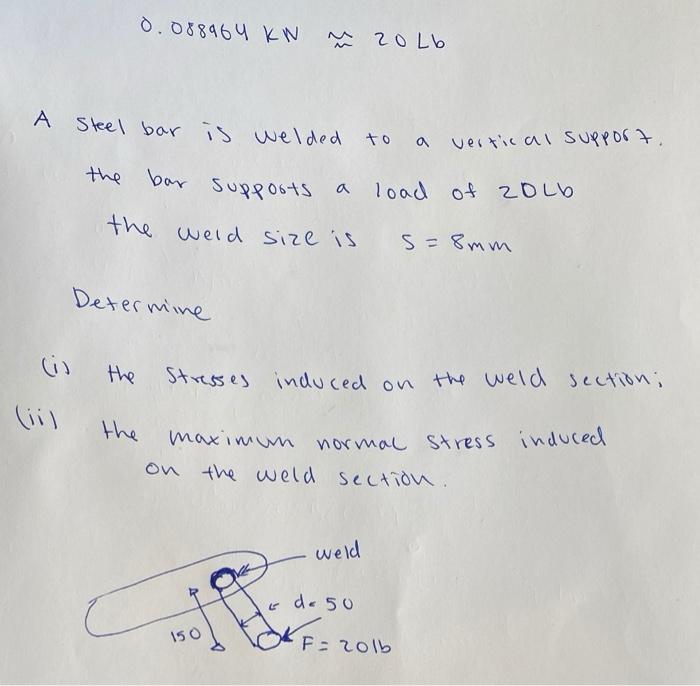 0.088964 KN ≈ 20 Lb
A Steel bar is welded to a vertical support.
the bar supports a load of 20Lb
the weld size is S = 8mm
Determine
(i) the stresses induced on the weld section;
(ii) the maximum normal stress induced
on the weld section.
weld
d= 50
150
F = 20lb